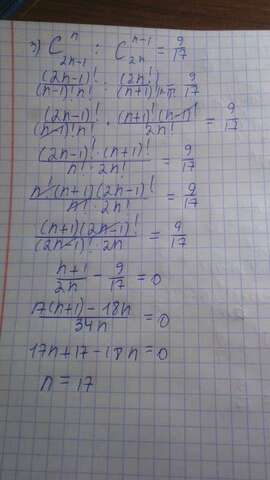 3) C^n_{2n-1} : C^{n-1}_{2n} = 9/17
(2n-1)!/((n-1)! n!) : (2n!)/((n+1)! = 9/17
(2n-1)!/((n-1)! n!) · (n+1)! (n-1)!/2n! = 9/17
(2n-1)! · (n+1)!/(n! · 2n!) = 9/17
n! (n+1)(2n-1)!/(n! · 2n!) = 9/17
(n+1)(2n-1)!/((2n-1)! · 2n) = 9/17
(n+1)/2n - 9/17 = 0
(17(n+1) - 18n)/34n = 0
17n+17-18n=0
n = 17